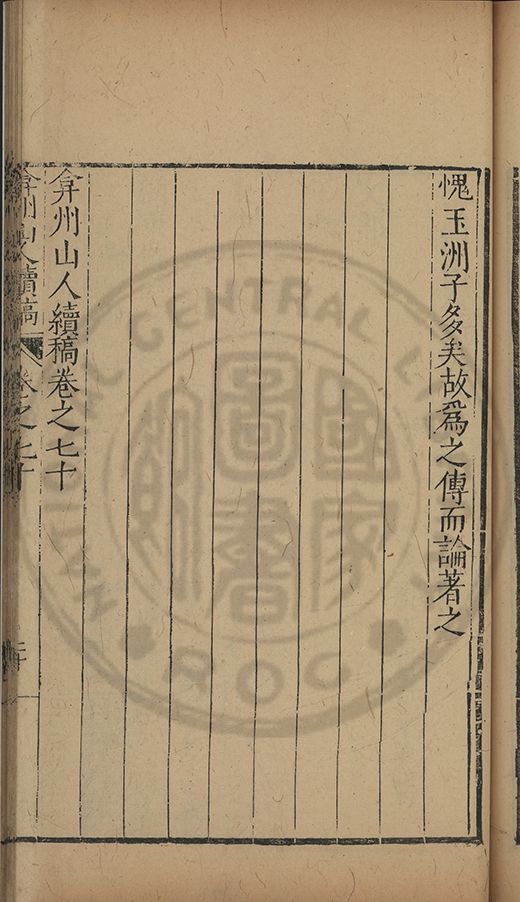 愧玉洲子多矣故爲之傳而論著之
弇州山人續稿卷之七十
弇州山人續稿
卷之七十